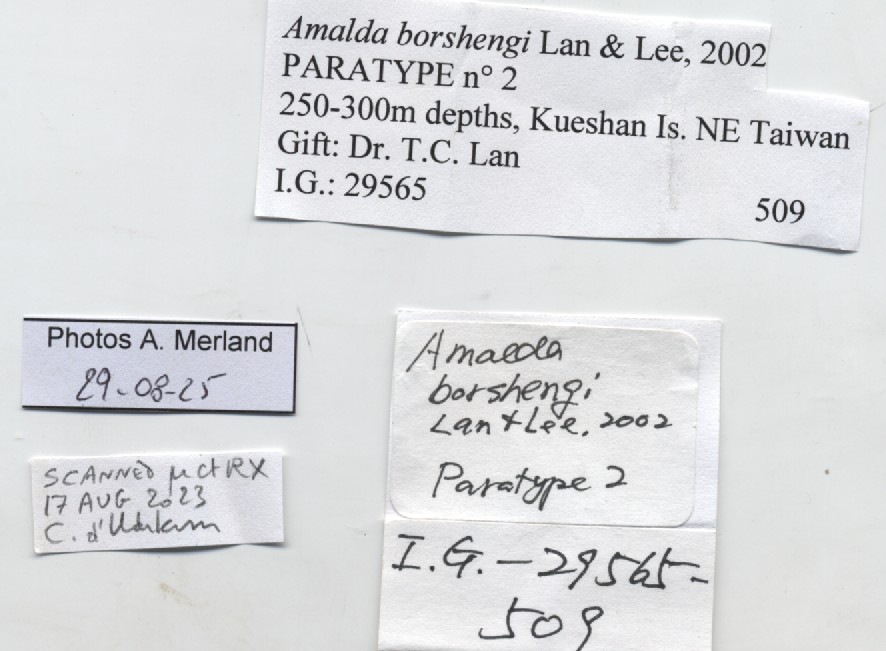 Amalda borshengi Lan & Lee, 2002
PARATYPE n° 2
250-300m depths, Kueshan Is. NE Taiwan
Gift: Dr. T.C. Lan
I.G.: 29565
509
Photos A. Merland
29-08-25
SCANNED µct RX
17 AUG 2023
C. d'Udekem
Amalda
borshengi
Lan & Lee, 2002
Paratype 2
I.G.-29565-
509